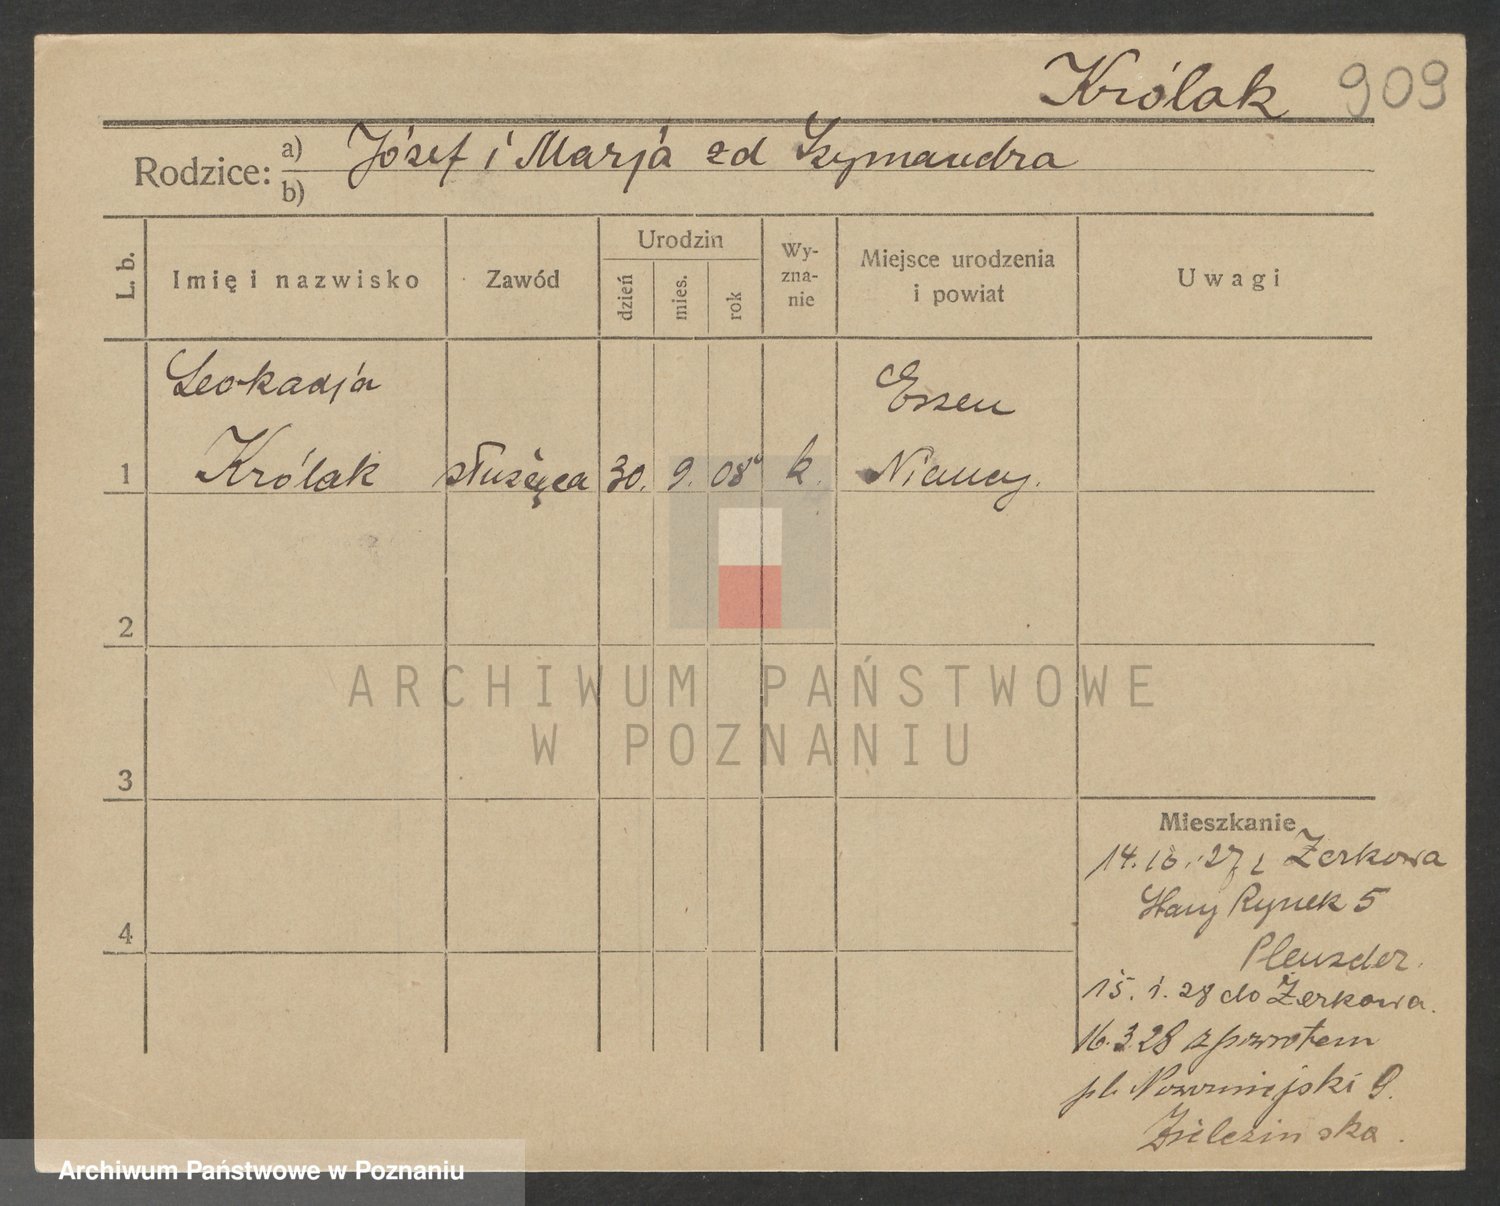 Królak 909
Rodzice: a) Józef i Marja zd Szymandra
b)
L. b.
Imię i nazwisko
Zawód
Urodzin
dzień
mies.
rok
Wy-
zna-
nie
Miejsce urodzenia
i powiat
Uwagi
Leokadja
Essen
1 Królak służąca 30. 9. 08 k. Niemcy.
2
3
4
Mieszkanie
z Żerkowa
Stary Rynek 5
15. 1. 28 do Żerkowa.
16.3.28 z powrotem
pl. Nowomiejski 9.
ARCHIWUM PAŃSTWOWE
W POZNANIU
Archiwum Państwowe w Poznaniu